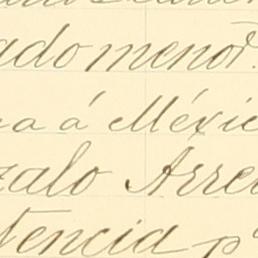 ado menor.
a á Méxic
zalo Arre
tencia p